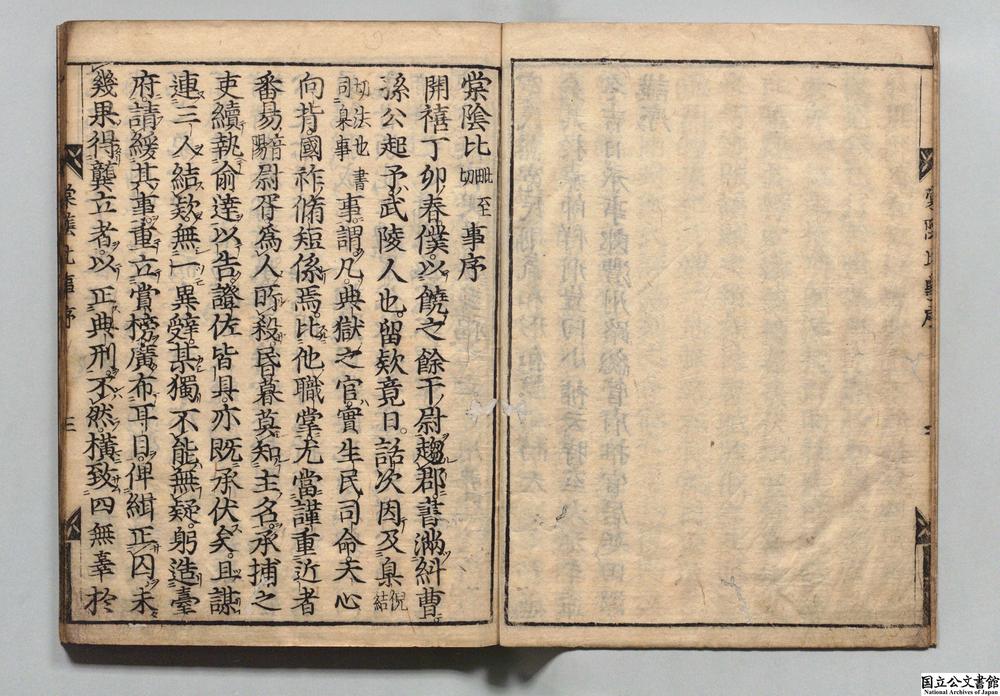 棠陰比事序
毗至切
開禧丁卯春僕以饒之餘干尉趨郡書滿糾曹
孫公起予武陵人也留欵竟日話次因及臬
倪結切法也書司臬事
事謂凡典獄之官實生民司命天心
向背國祚脩短係焉比他職掌尤當謹重近者
番易
音陽
尉胥爲人所殺昏暮莫知主名承捕之
吏續執俞達以告證佐皆具亦既承伏矣且謀
連三人結欵無一異辤某獨不能無疑躬造臺
府請緩其事重立賞榜廣布耳目俾緝正囚未
幾果得龔立者以正典刑不然橫致四無辜於
棠陰比事序
国立公文書館
National Archives of Japan